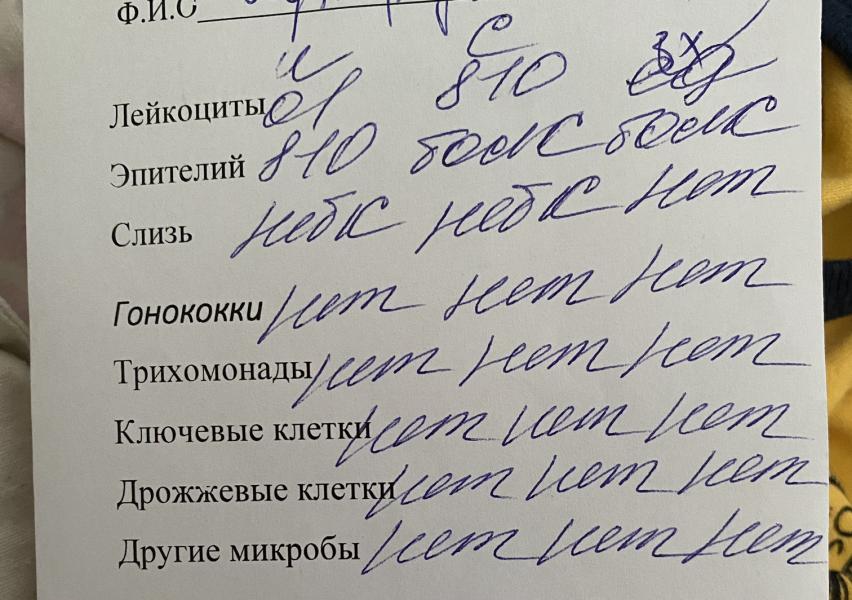 Ф.И.О
u C зх
Лейкоциты 01 810
Эпителий 810 болК болК
Слизь небК небК нет
Гонококки нет нет нет
Трихомонады нет нет нет
Ключевые клетки нет нет нет
Дрожжевые клетки нет нет нет
Другие микробы нет нет нет